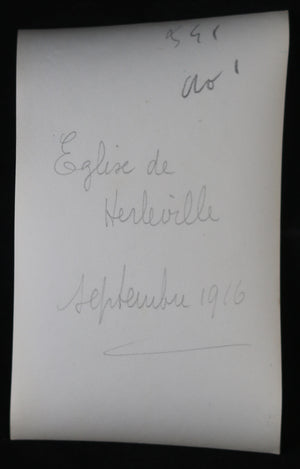 Eglise de
Herleville
septembre 1916